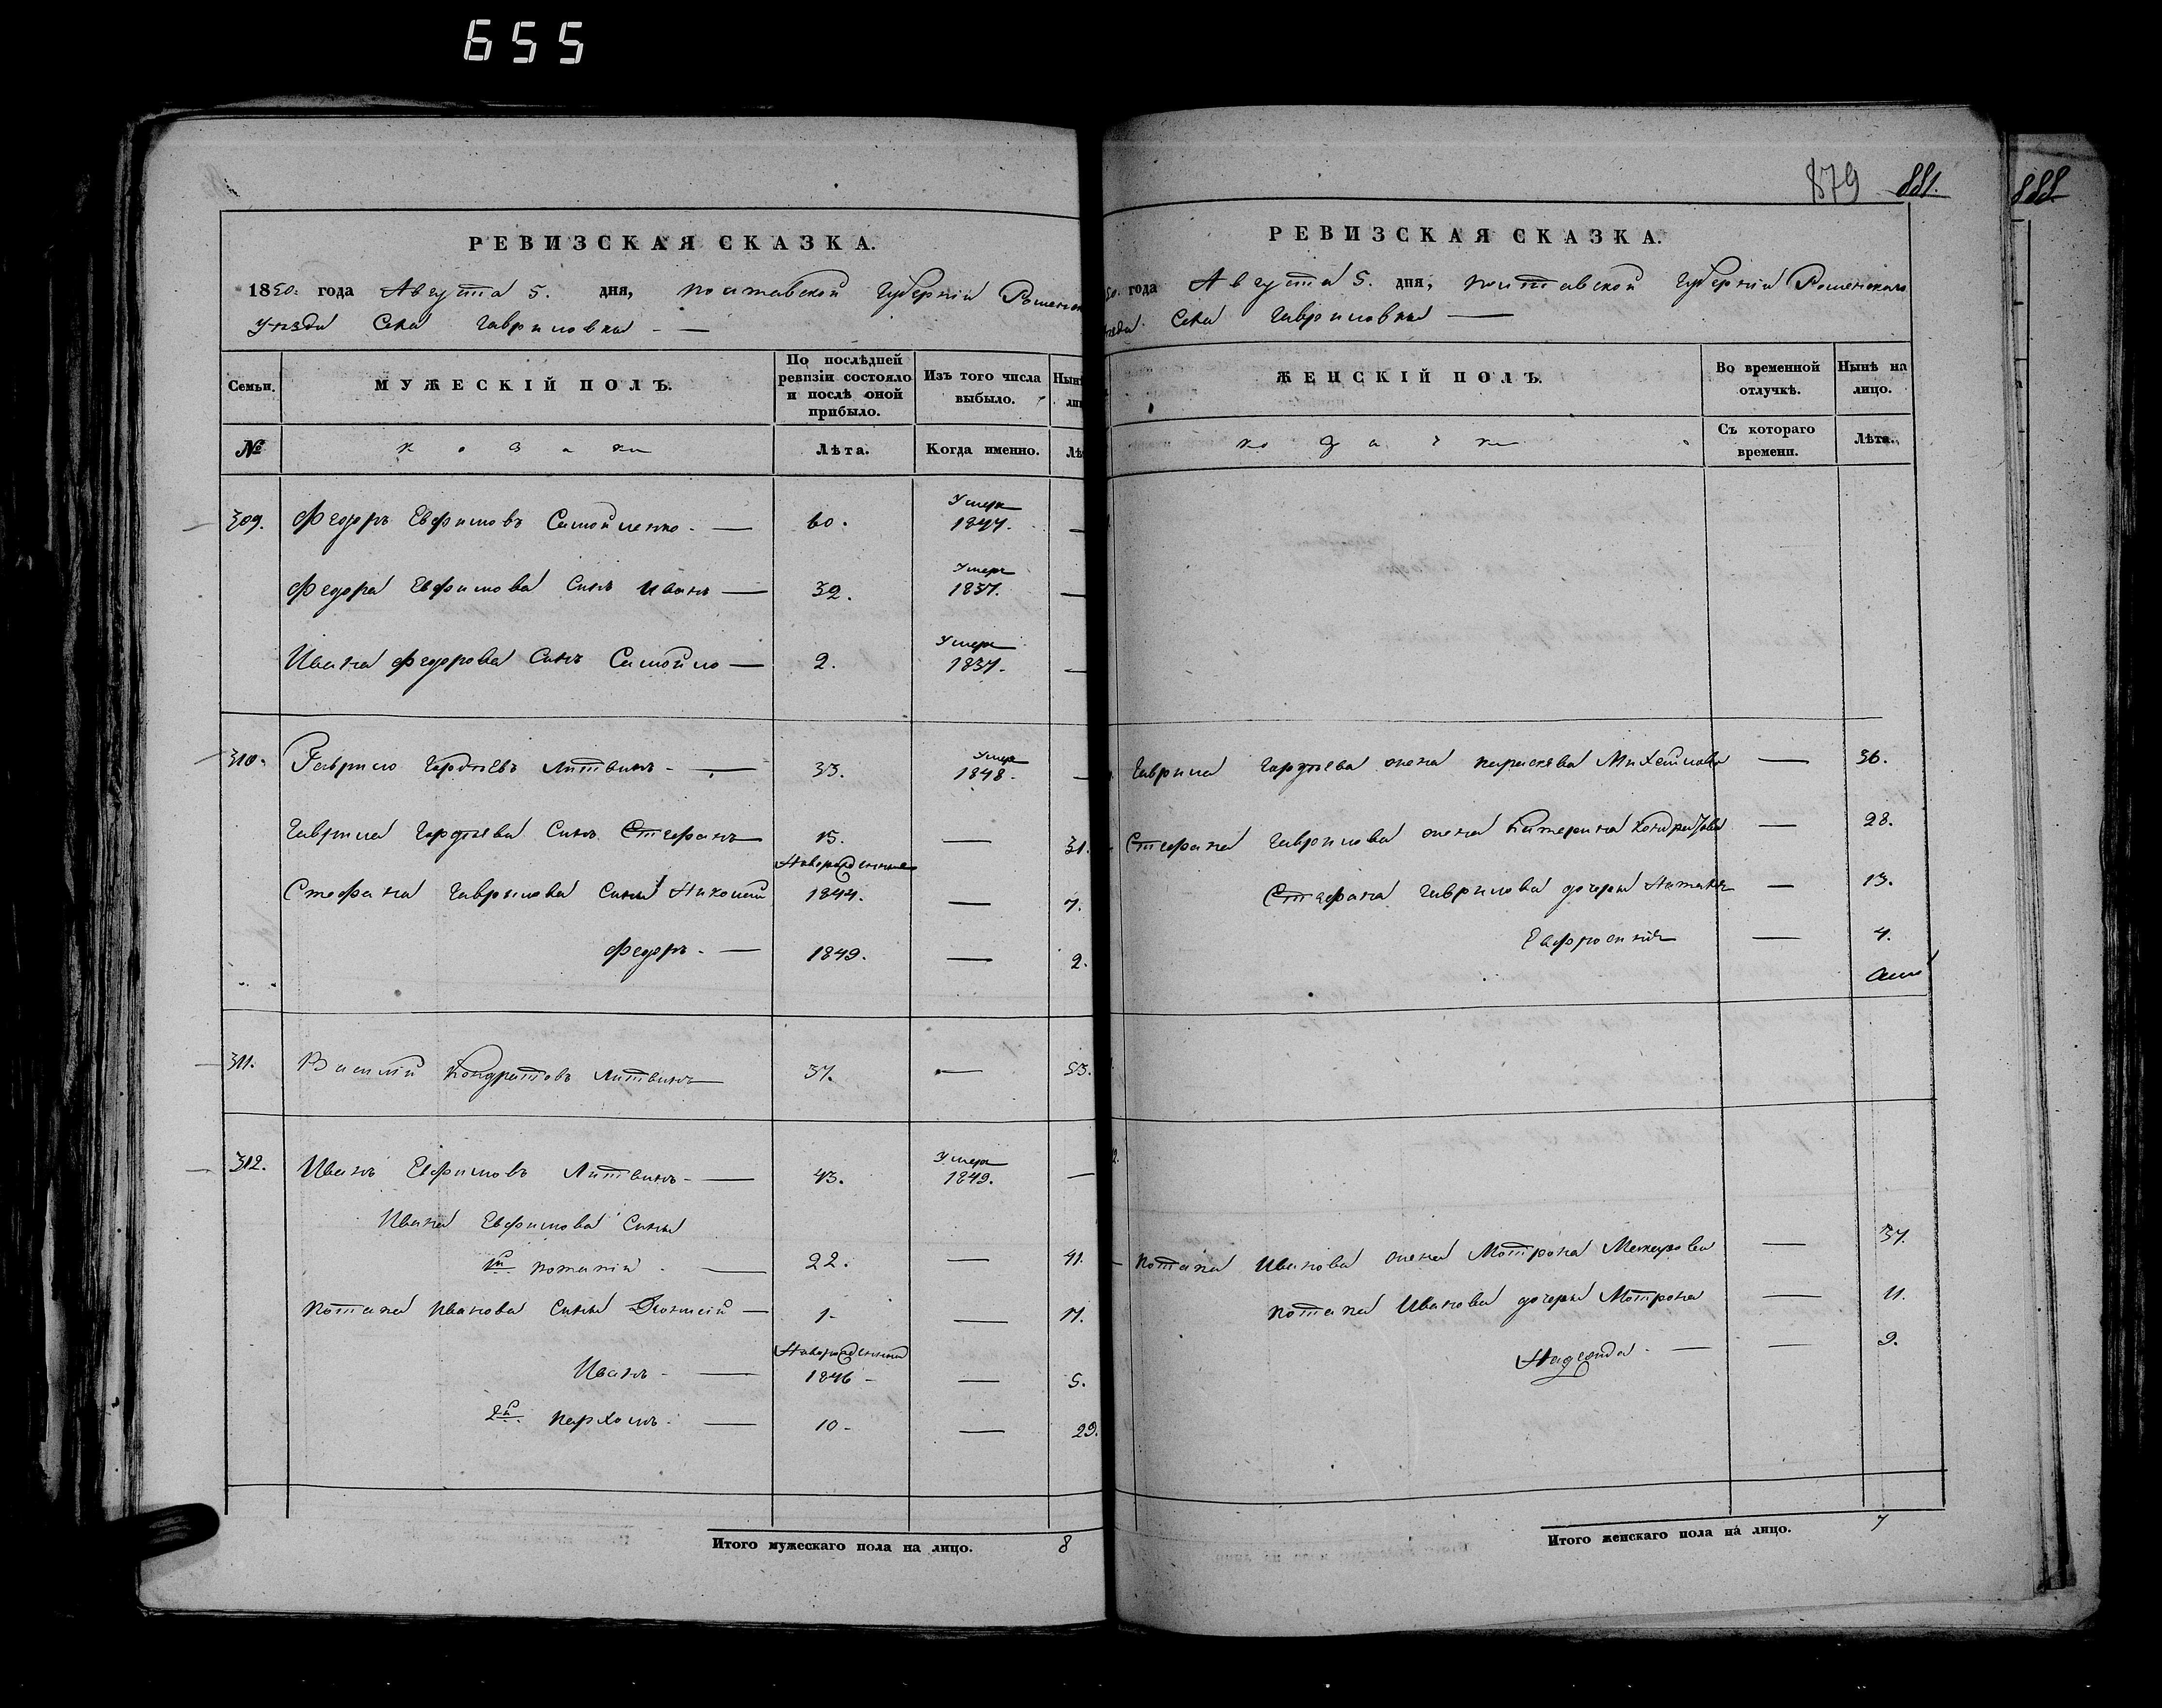 655
РЕВИЗСКАЯ СКАЗКА.
1850. года Августа 5. дня, полтавской Губерніи Роменск
уѣзда Села Гавриловки
Семьи.
МУЖЕСКІЙ ПОЛЪ.
По послѣдней ревизіи состояло и послѣ оной прибыло.
Изъ того числа выбыло.
Нын
№
козаки
Лѣта.
Когда именно.
Лѣ
309. Федоръ Евфимовъ Самойленко. — 60. Умеръ 1847. —
Федора Евфимова Сынъ Иванъ — 32. Умеръ 1837. —
Ивана Федорова Сынъ Самойло — 2. Умеръ 1837. —
310. Гаврило Гордѣевъ Литвинъ — 33. Умеръ 1848. —
Гаврила Гордѣева Сынъ Стефанъ 15. — 31.
Новорожденные
Стефана Гаврилова Сыны Николай 1844. — 7.
Федоръ. — 1849. — 2.
311. Василій Кондратовъ Литвинъ 37. — 53.
312. Иванъ Евфимовъ Литвинъ — 43. Умеръ 1849. —
Ивана Евфимова Сыны
1й потапій — 22. — 41.
потапа Иванова Сыны — 1 — 17.
Новорожденный
Иванъ — 1846 — 5.
2й пархомъ — 10 — 29.
Итого мужескаго пола на лицо. 8
879 881.
888
РЕВИЗСКАЯ СКАЗКА.
50. года Августа 5. дня, полтавской Губерніи Роменскаго
уѣзда Села Гавриловки —
ЖЕНСКІЙ ПОЛЪ.
Во временной отлучкѣ.
Нынѣ на лицо.
козачки
Съ котораго времени.
Лѣта.
Гаврила Гордѣева жена параскева Михайлова — 36.
Стефана Гаврилова жена Катерина Кондратова — 28.
Стефана Гаврилова дочери Наталья — 13.
Евфросинія — 4.
потапа Иванова жена Мотрона — 37.
потапа Иванова дочери Мотрона — 11.
Надежда — 9.
Итого женскаго пола на лицо. 7